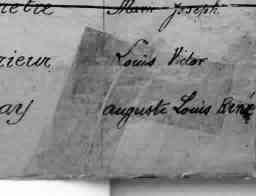 Marie Joseph
rieur Louis Victor
ay Auguste Louis René